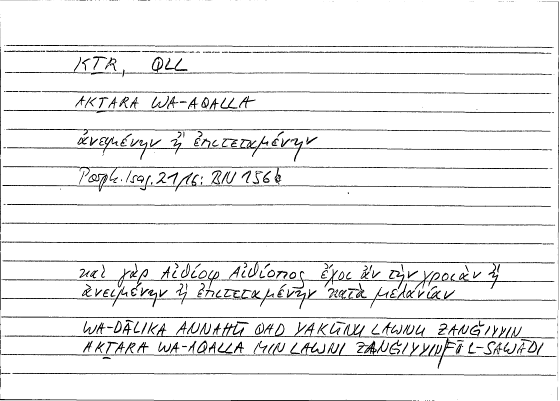 KṮR, QLL
AKṮARA WA-AQALLA
ἀνειμένην ἢ ἐπιτεταμένην
Porph. Isag. 21,16: BN 156b
καὶ γὰρ Αἰθίοψ Αἰθίοπος ἔχοι ἂν τὴν χροιὰν ἢ
ἀνειμένην ἢ ἐπιτεταμένην κατὰ μελανίαν
WA-ḎĀLIKA ANNAHŪ QAD YAKŪNU LAWNU ZANǦIYYIN
AKṮARA WA-AQALLA MIN LAWNI ZANǦIYYIN FĪ L-SAWĀDI